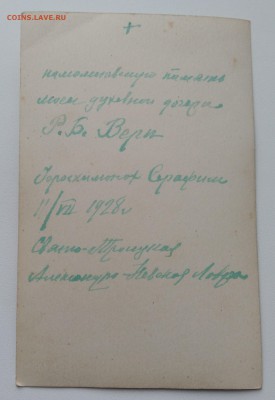 COINS.SS.RU
+
на молитвенную память
моей духовной дочери
Р.Б. Вере
Иеросхимонах Серафим
11/VII 1928 г
Свято-Троицкая
Александро-Невская Лавра